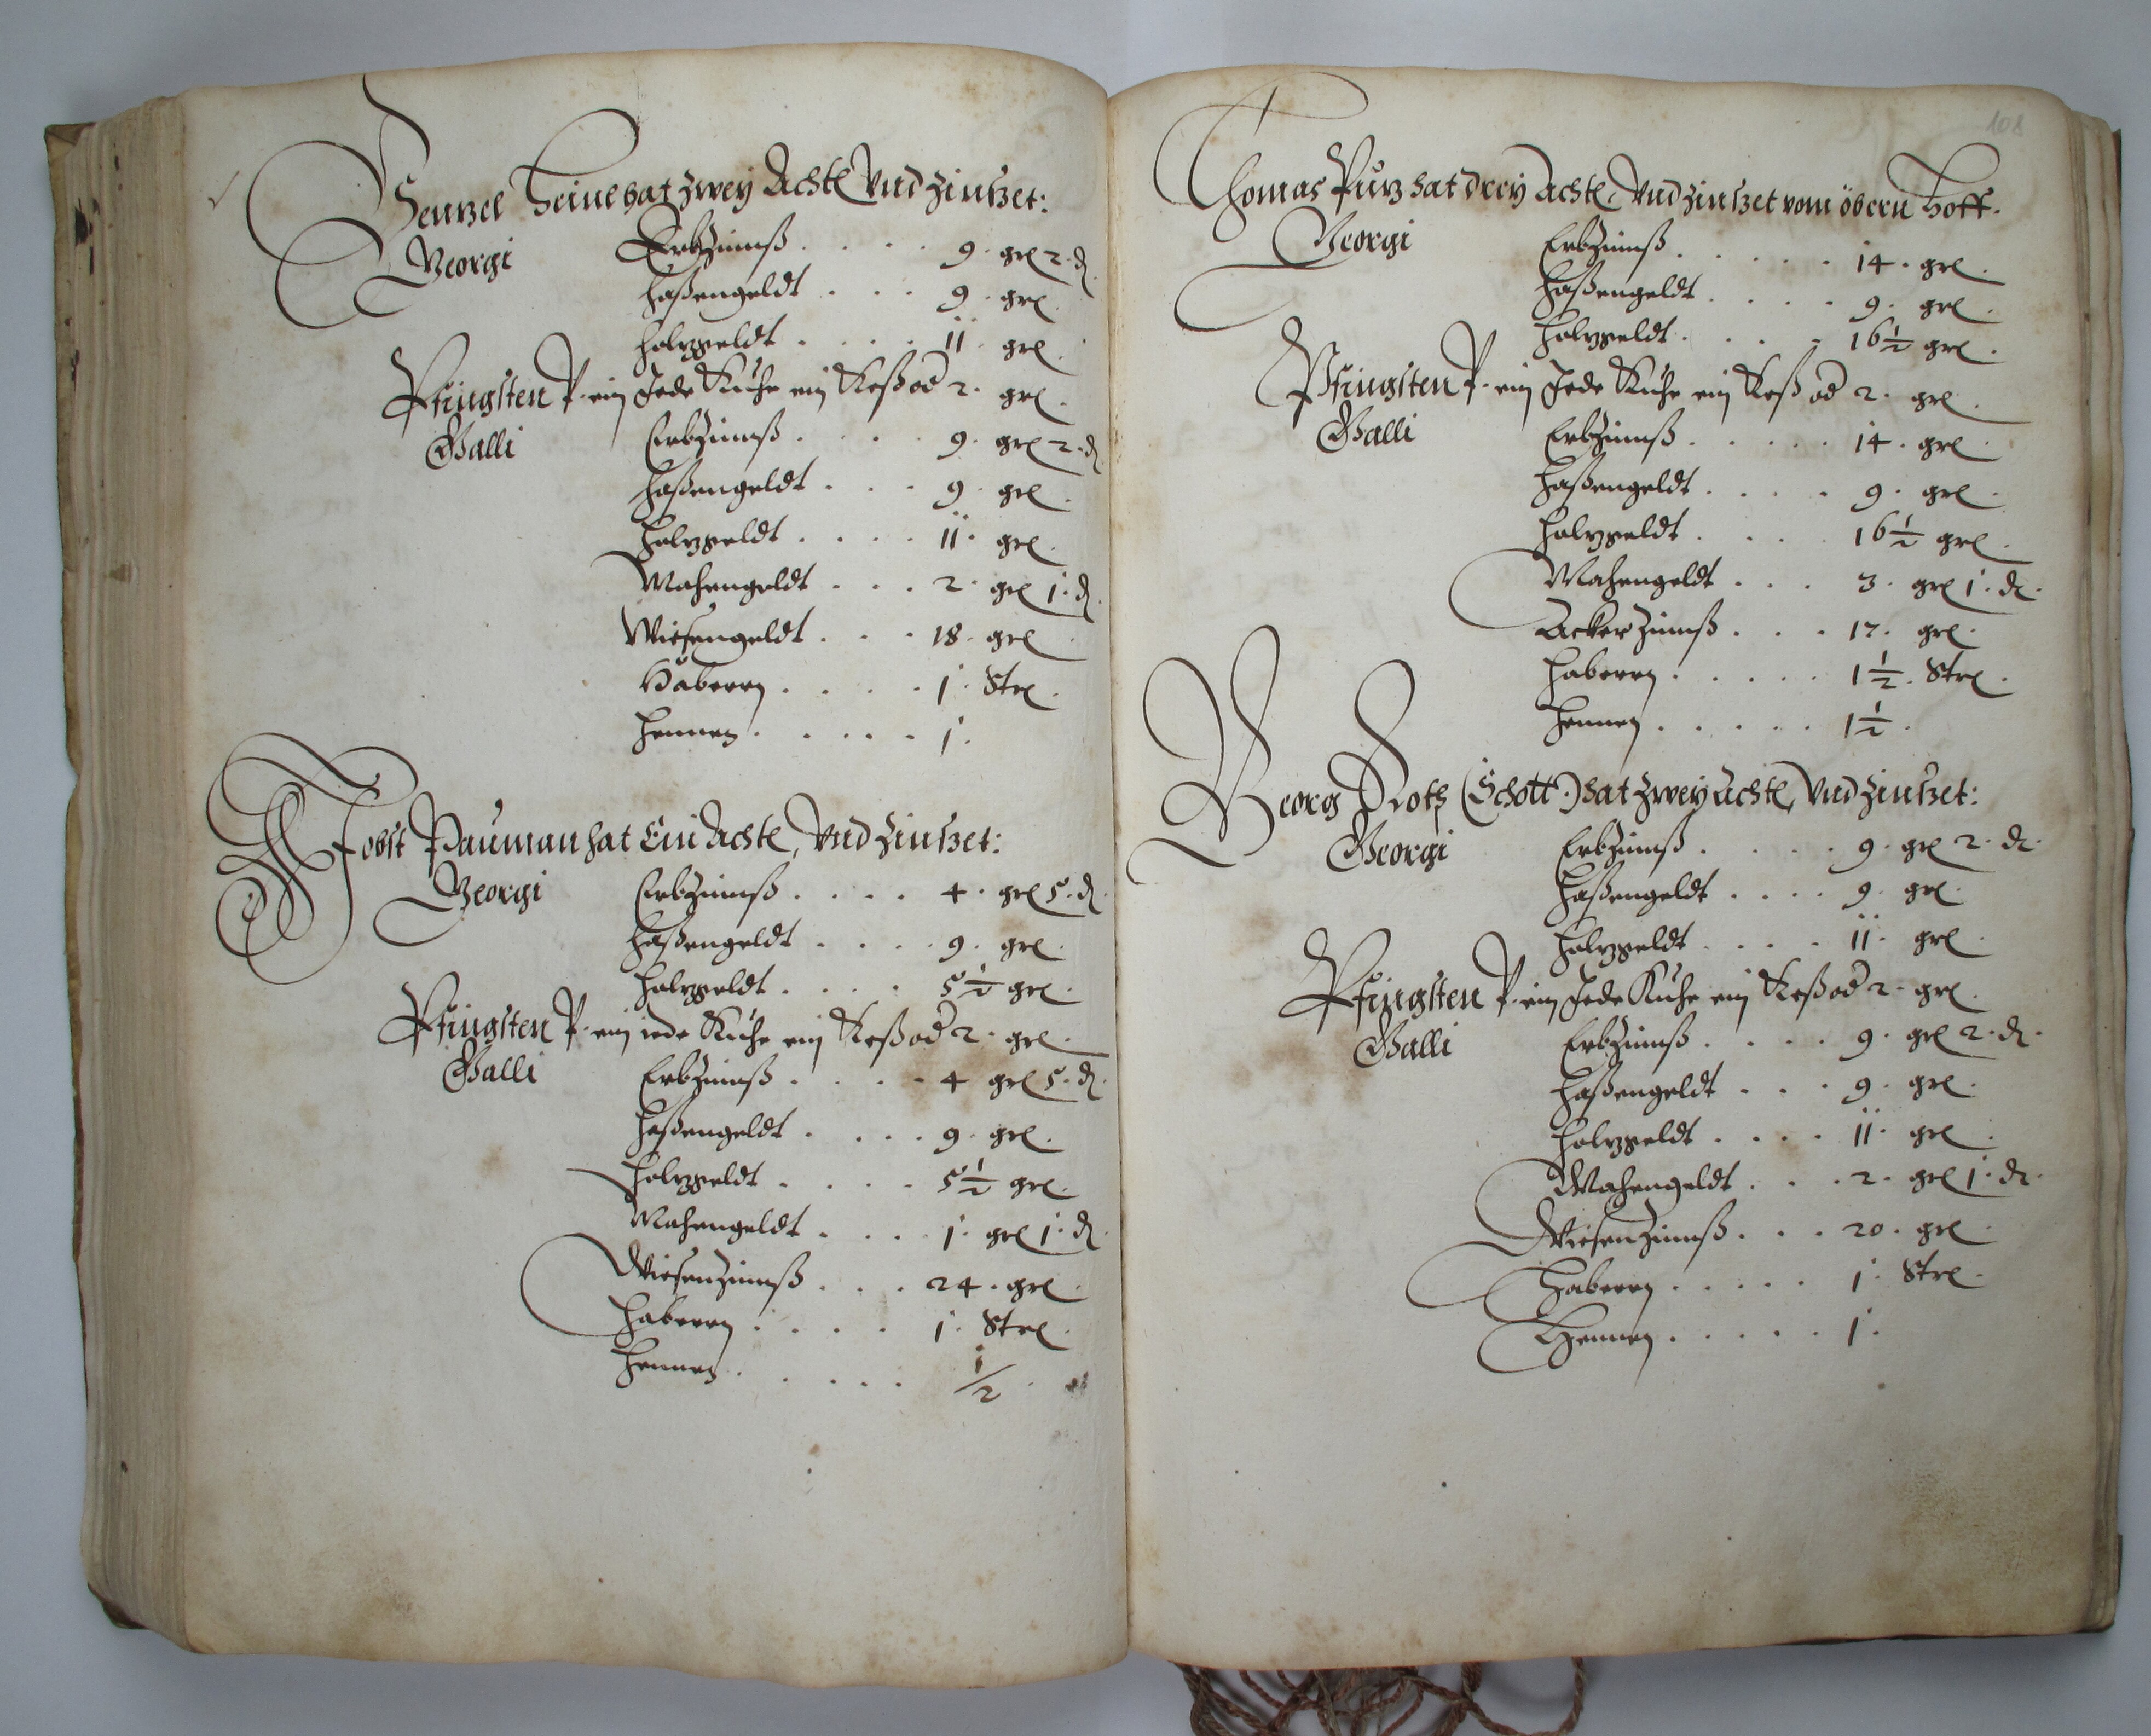 Wenzel Heine hat zwey Achtel Vnd Zinßet:
Georgi Erbzinnß . . . . 9 . grl 2 . d.
Haßengeldt . . . 9 . grl.
Holzgeldt . . . . 11 . grl.
Pfingsten P. ein Jede Kuhe ein Keß od 2 . grl.
Galli Erbzinnß . . . . 9 . grl 2 . d
Haßengeldt . . . 9 . grl.
Holzgeldt . . . . 11 . grl.
Mahengeldt . . . 2 . grl 1 . d.
Wiesengeldt . . . 18 . grl
Haberrn . . . . 1 . Strl.
Hennen . . . . . 1 .
Jobst Pauman hat Ein Achtel, Vnd Zinßet:
Georgi Erbzinnß . . . . 4 . grl 5 . d.
Haßengeldt . . . . 9 . grl.
Holzgeldt . . . . 5 1/2 grl.
Pfingsten P. ein iede Kuhe ein Keß od 2 . grl.
Galli Erbzinnß . . . . 4 grl 5 . d.
Haßengeldt . . . . 9 . grl.
Holzgeldt . . . . 5 1/2 grl.
Mahengeldt . . . 1 . grl 1 . d.
Wiesenzinnß . . . 24 . grl.
Haberrn . . . . 1 . Strl.
Hennen . . . . . 1/2 .
108
Thomas Purz hat drey Achtel, Vnd Zinßet vom öbern Hoff.
Georgi Erbzinnß . . . . . 14 . grl.
Haßengeldt . . . . 9 . grl.
Holzgeldt . . . . 16 1/2 grl.
Pfingsten P. ein Jede Kuhe ein Keß od 2 . grl.
Galli Erbzinnß . . . . . 14 . grl.
Haßengeldt . . . . 9 . grl.
Holzgeldt . . . . 16 1/2 grl.
Mahengeldt . . . 3 . grl 1 . d.
Ackerzinnß . . . 17 . grl.
Haberrn . . . . . 1 1/2 . Strl.
Hennen . . . . . 1 1/2 .
Georg Proth (Schott.) hat zwey Achtel, Vnd Zinßet:
Georgi Erbzinnß . . . . 9 . grl 2 . d.
Haßengeldt . . . . 9 . grl.
Holzgeldt . . . . 11 . grl.
Pfingsten P. ein Jede Kuhe ein Keß od 2 . grl.
Galli Erbzinnß . . . . 9 . grl 2 . d.
Haßengeldt . . . 9 . grl.
Holzgeldt . . . . 11 . grl.
Mahengeldt . . . 2 . grl 1 . d.
Wiesenzinnß . . . 20 . grl.
Haberrn . . . . . 1 . Strl.
Hennen . . . . . 1 .